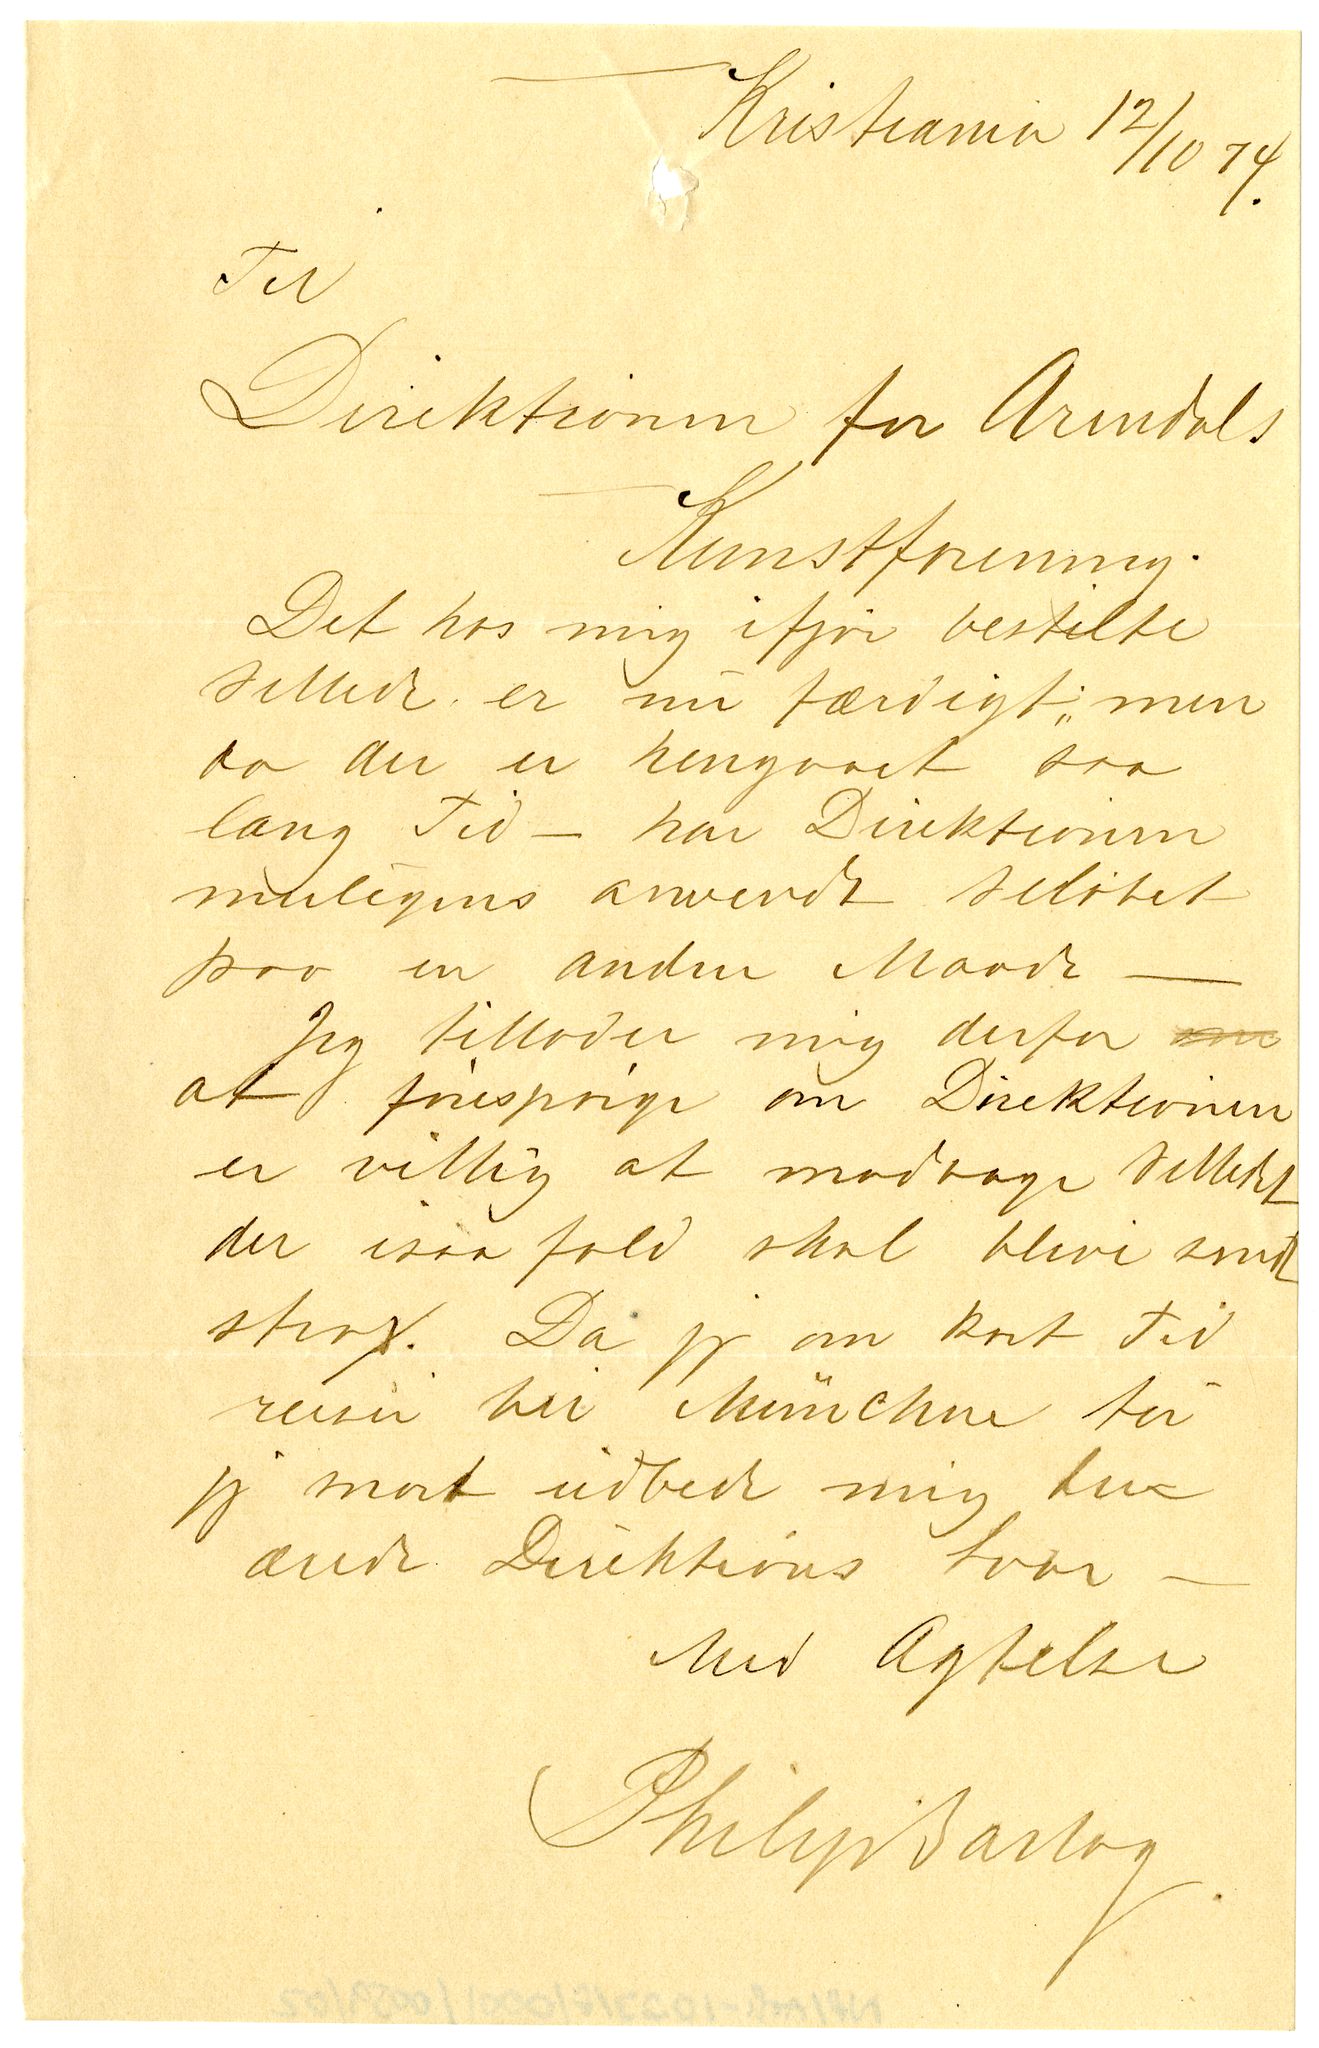 Kristiania 12/10 74.
Til
Direktionen for Arendals
Kunstforening.
Det hos mig ifjor bestilte
Billede er nu færdigt; men
da der er hengaaet saa
lang Tid – har Direktionen
muligens anvendt Beløbet
paa en anden Maade —
Jeg tillader mig derfor
at forespørge om Direktionen
er villig at modtage Billedet
der isaafald skal blive sendt
strax. Da jeg om kort Tid
reiser til München tør
jeg snart udbede mig den
ærede Direktions Svar –
Med Agtelse
Philip Barlag